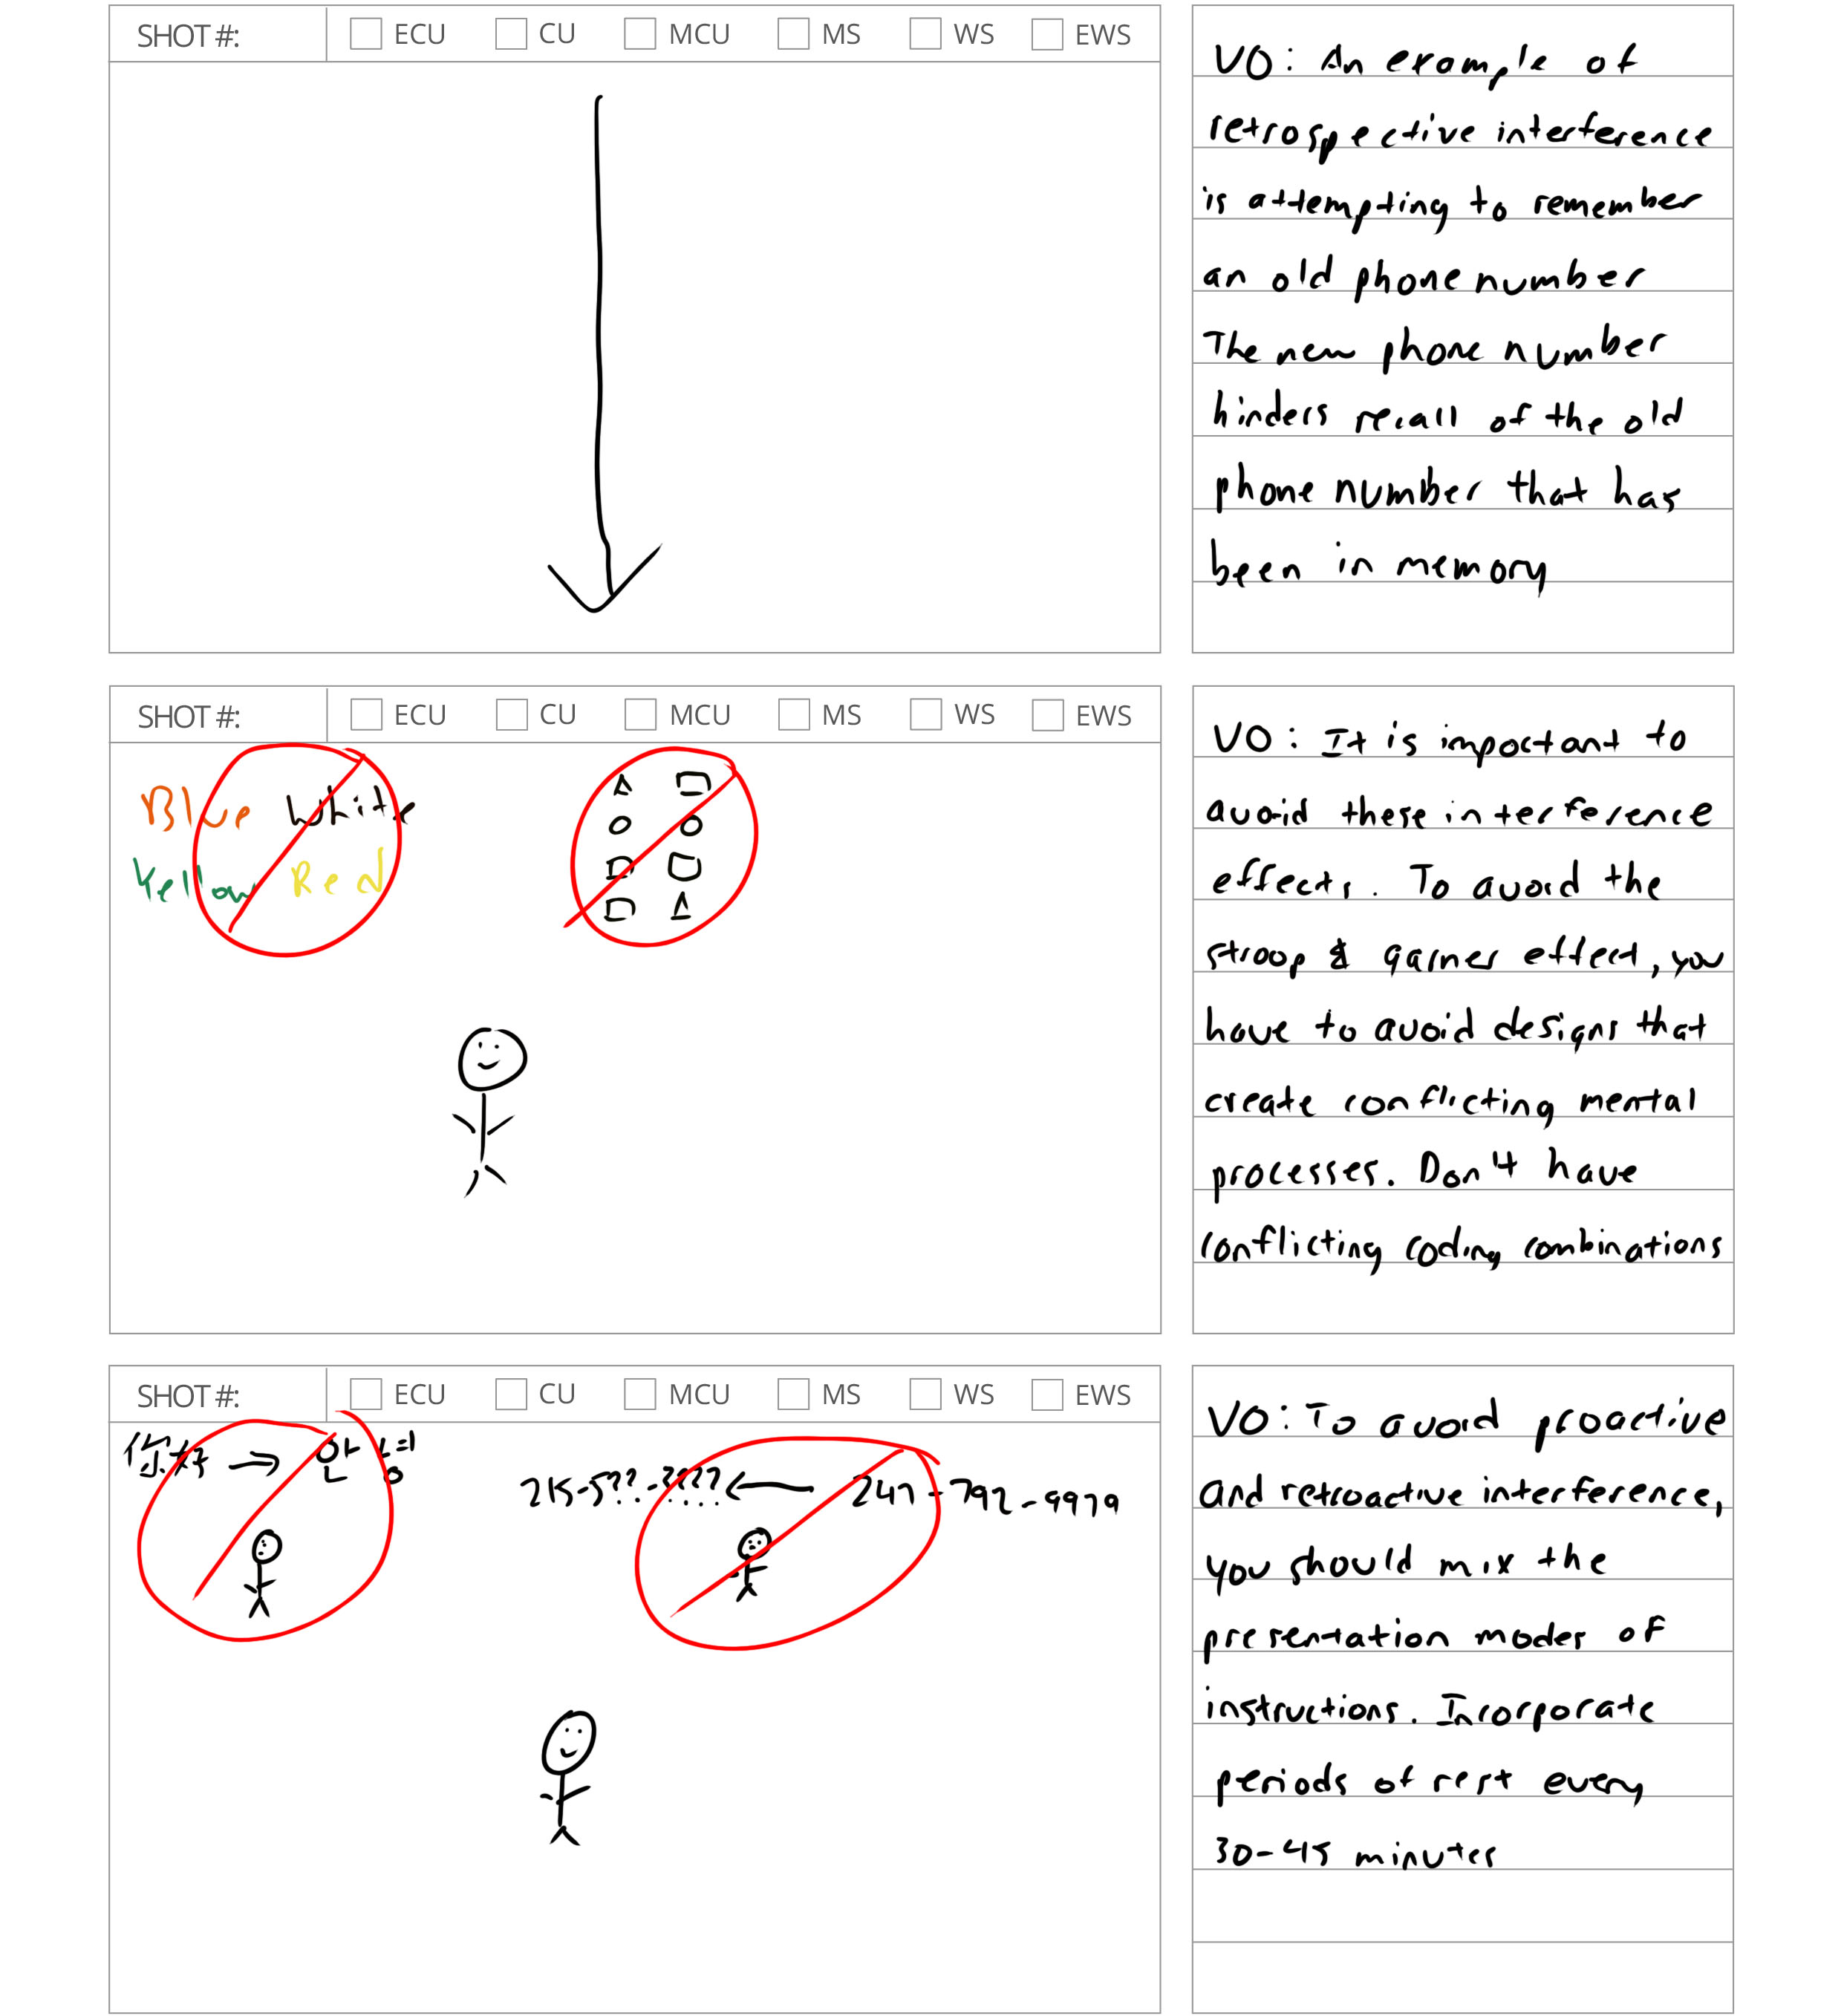 SHOT #: ECU CU MCU MS WS EWS
VO: An example of
retrospective interference
is attempting to remember
an old phone number
The new phone number
hinders recall of the old
phone number that has
been in memory
SHOT #: ECU CU MCU MS WS EWS
Blue White
Yellow Red
VO: It is important to
avoid these interference
effects. To avoid the
stroop & garner effect, you
have to avoid designs that
create conflicting mental
processes. Don't have
conflicting coding combinations
SHOT #: ECU CU MCU MS WS EWS
你好 ⇒
215-5??-???? ← 247-792-9979
VO: To avoid proactive
and retroactive interference,
you should mix the
presentation modes of
instructions. Incorporate
periods of rest every
30-45 minutes